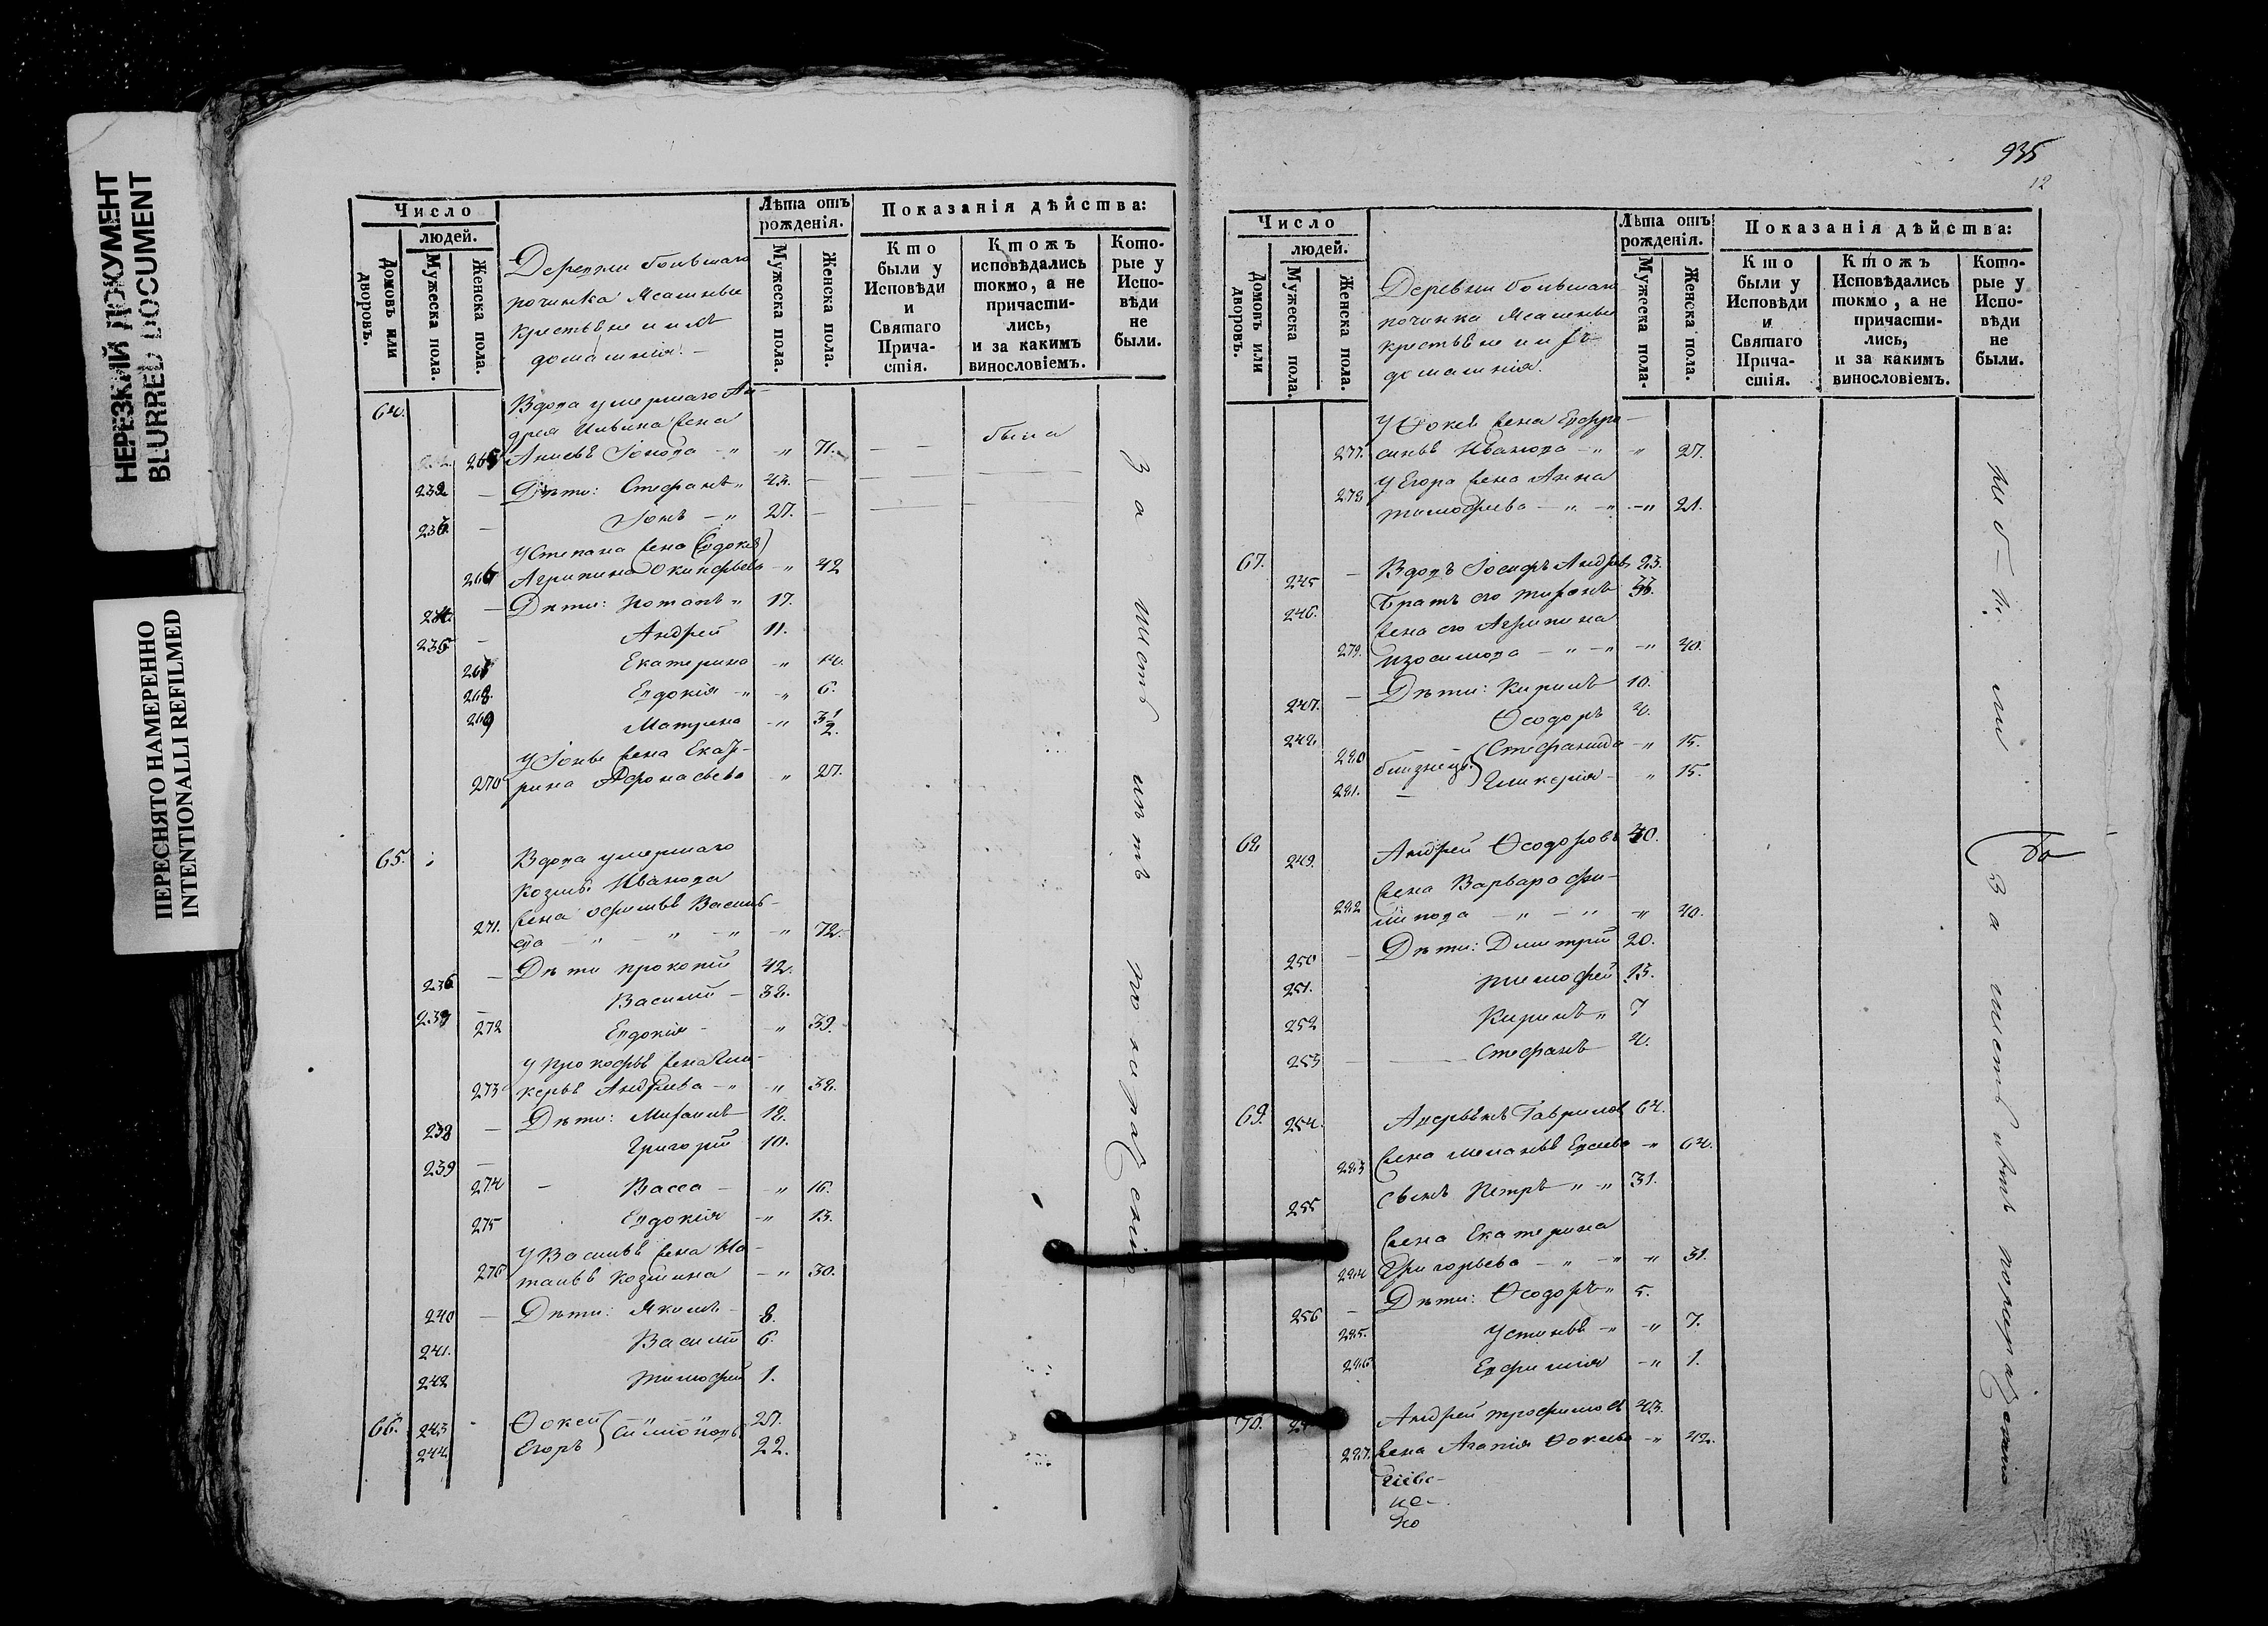 НЕРЕЗКИЙ ДОКУМЕНТ
BLURRED DOCUMENT
ПЕРЕСНЯТО НАМЕРЕННО
INTENTIONALLI REFILMED
Число
людей.
Домовъ или дворовъ.
Мужеска пола.
Женска пола.
Деревни большаго
починка Ясашныи
крестьяне и ихъ
домашнія. —
Лѣта отъ
рожденія.
Мужеска пола.
Женска пола.
Показанія дѣйства:
Кто
были у
Исповѣди
и
Святаго
Прича-
стія.
Ктожъ
исповѣдались
токмо, а не
причасти-
лись,
и за какимъ
винословіемъ.
Кото-
рые у
Испо-
вѣди
не
были.
64. Вдова умершаго Ан-
дрея Ильина жена
265 Анисья Іонова — " — " 71. — была
232 — Дѣти: Стефанъ " 43. —
Іонъ — " 27. —
у Степана жена
266 Агрипина — " 42
— Дѣти: Потапъ " 17.
235 — Андрей 11.
Екатерина — " 14.
268. Евдокія — " — " 6.
269 Матрена — " 3 1/2.
у Іоны жена Екате-
270 рина Афонасьева — " 27.
65. Вдова умершаго
Козмы Иванова
271. жена Офимья Василь-
ева — " — " — " — " 72.
236 — Дѣти Прокопій 42.
237 — Василій — 38.
272 Евдокія — — " 39.
у Прокофья жена Гли-
273 керья Андреева — " — " 38.
238 — Дѣти: Михаилъ 18.
239 — Григорій 10.
274 — Васса — — " 16.
275 Евдокія — " 13.
у Василья жена На-
276 талья Козмина — " 30.
240 — Дѣти: Якимъ — 8.
241. Василій 6.
242 Тимофей 1.
66. 243 Ѳокей 27.
244 Егоръ Симоновы 22.
За
935
12
Число
людей.
Домовъ или дворовъ.
Мужеска пола.
Женска пола.
Деревни большаго
починка Ясашныи
крестьяне и ихъ
домашнія.
Лѣта отъ
рожденія.
Мужеска пола.
Женска пола.
Показанія дѣйства:
Кто
были у
Исповѣди
и
Святаго
Прича-
стія.
Ктожъ
Исповѣдались
токмо, а не
причасти-
лись,
и за какимъ
винословіемъ.
Кото-
рые у
Испо-
вѣди
не
были.
у Ѳокея жена Ефро-
277. синья Иванова — " " 27.
278 у Егора жена Анна
Тимофеева — " — " — " 21.
67. 245 — Вдовъ Іосифъ Андреевъ 23.
246. Братъ его Тихонъ
жена его Агрипина
279. Изосимова — " — " — " 40.
247. — Дѣти: Кирилъ 10.
248. Ѳеодоръ 4.
280 близнецы Стефанида — " 15.
281. — Гликерія — " 15.
68 249. Андрей Ѳеодоровъ 40.
жена Варвара Фи-
282 липова — " — " — " 40.
250 — Дѣти: Димитрій 20.
251. Тимофей 13.
252 Кирилъ " 7
253 — Стефанъ 4.
69. 254. Гавриловъ 64.
283 жена Меланья — " 64.
255 Сынъ Петръ " — " 31.
жена Екатерина
284 Григорьева — " — " — " 31.
256 — Дѣти: Ѳеодоръ " 5.
285. Устинья — " — " 7.
286 Евфимія — " 1.
70. Андрей Трофимовъ 43.
287. жена Агапія Ѳокеева — " 42.